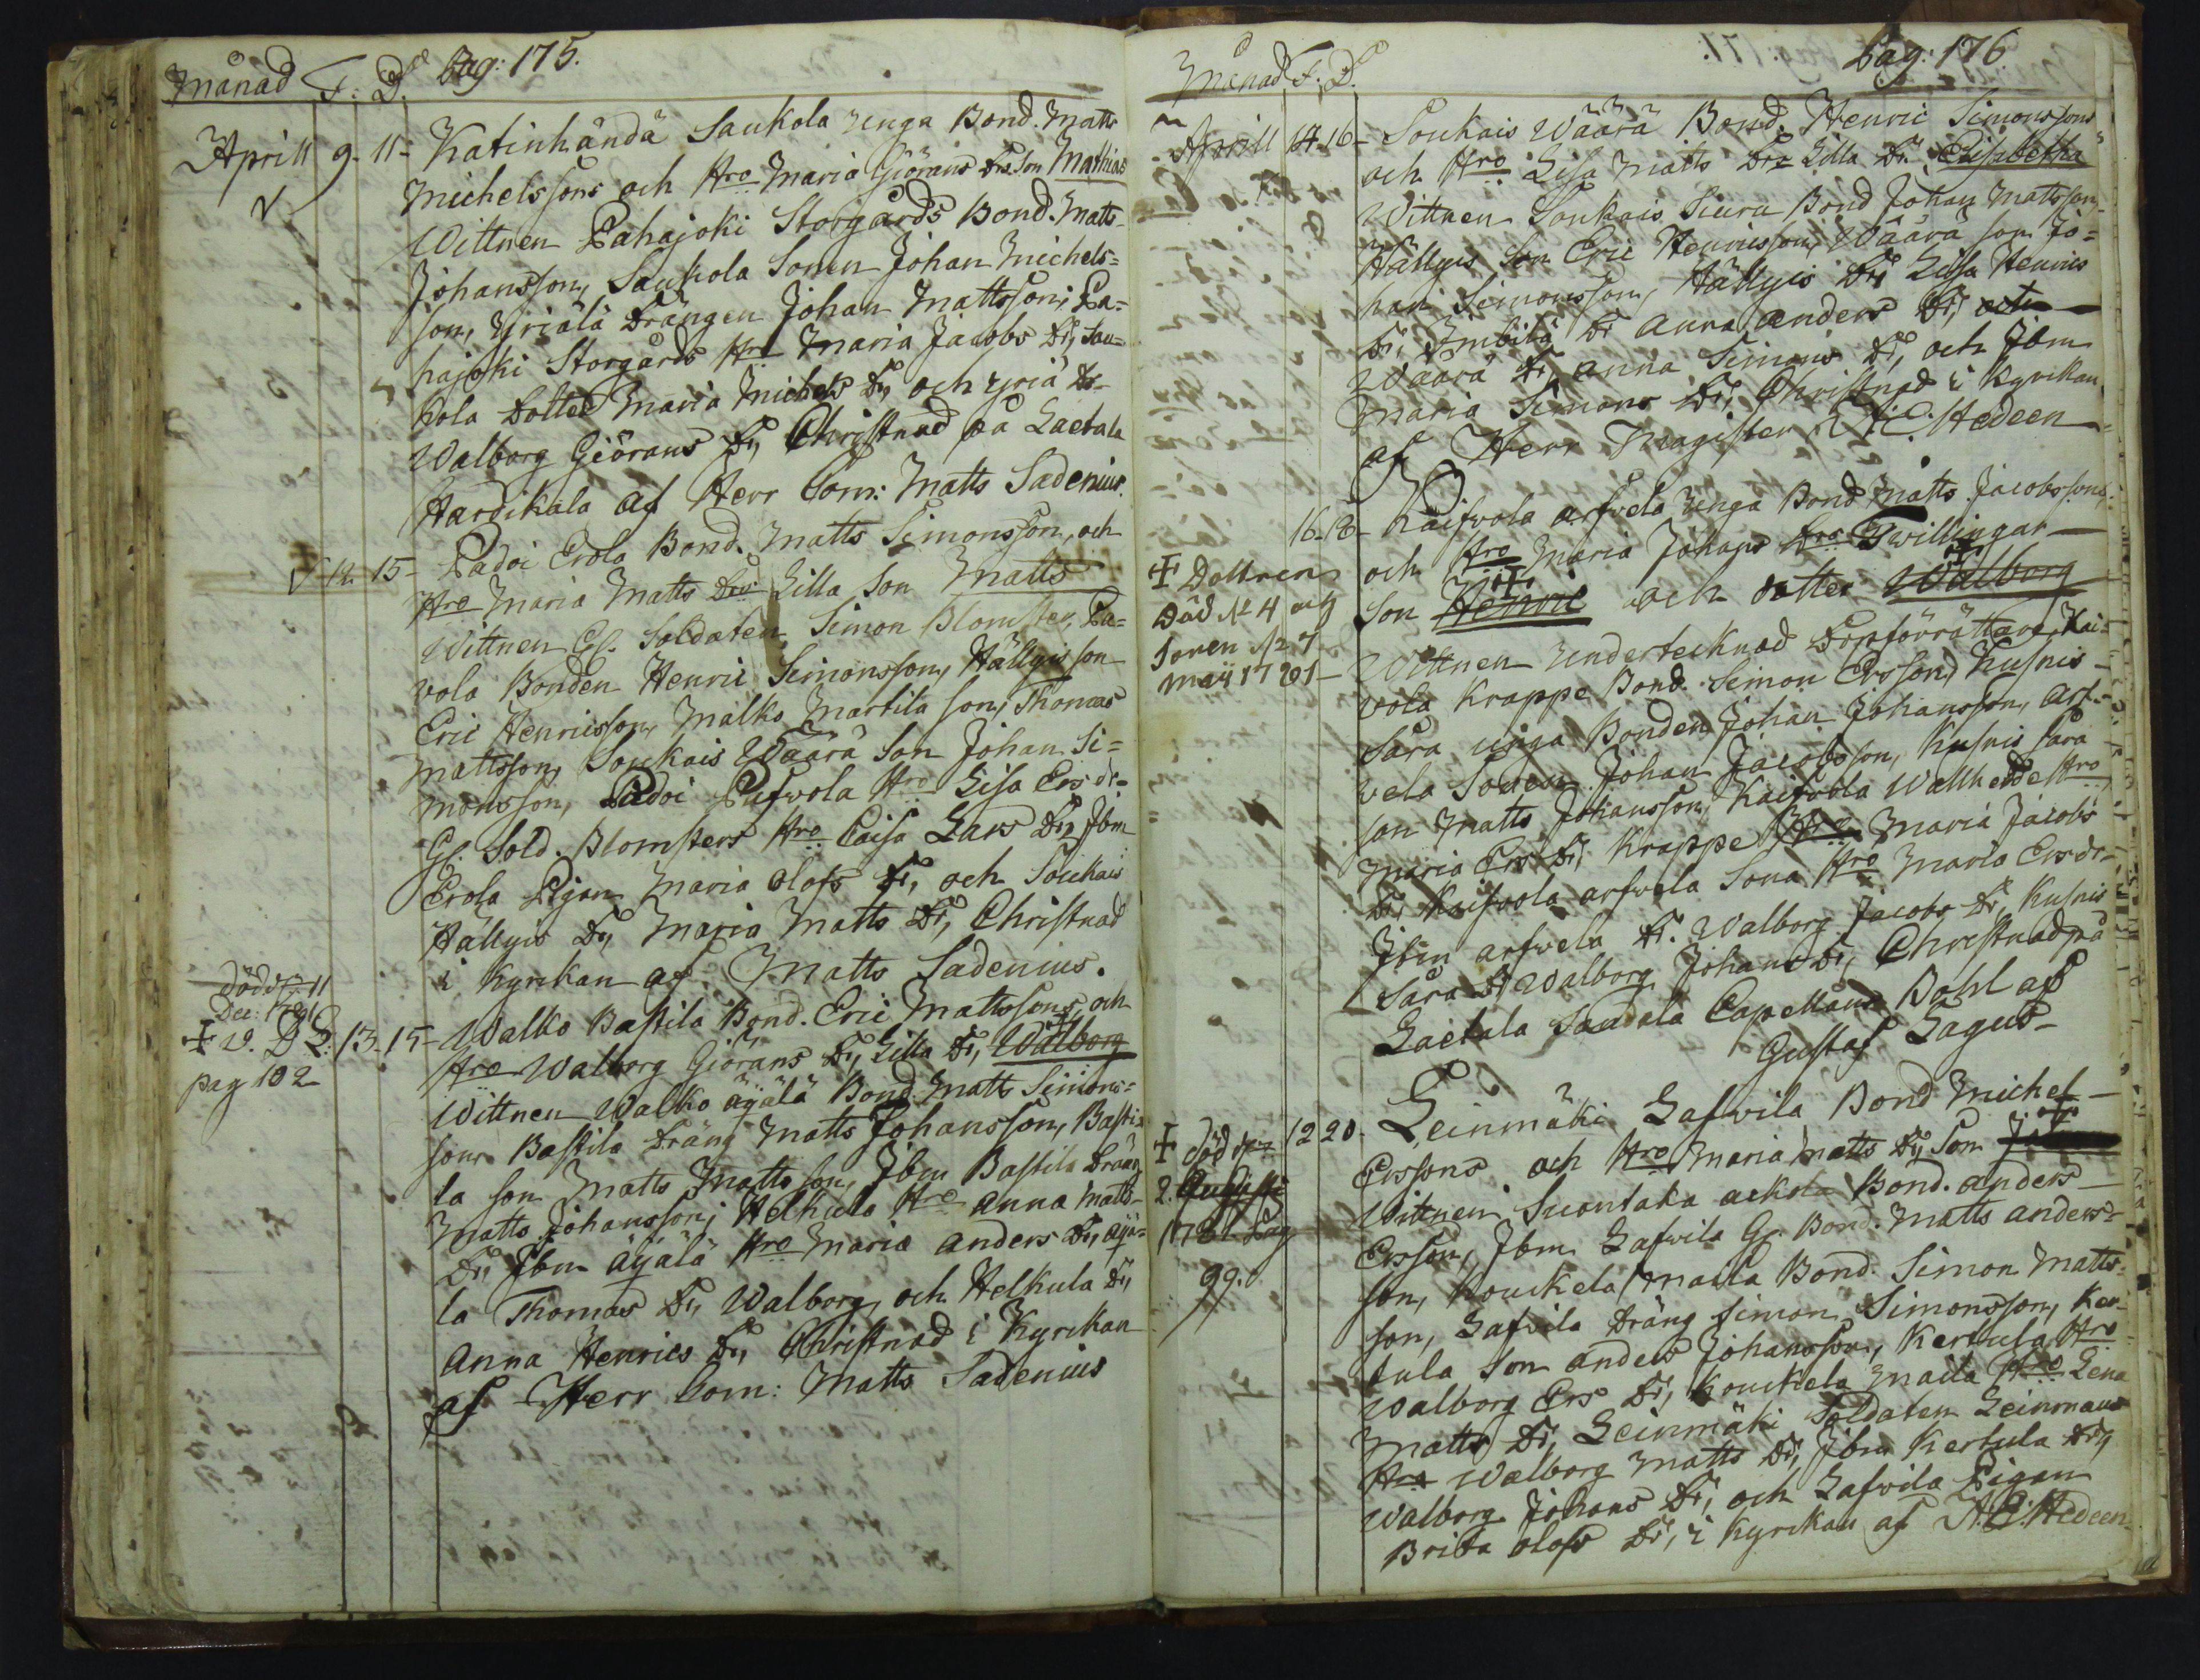 Månad F: D. Pag: 175.
Aprill 9-11- Katinhändä Saukola Unga Bond. Matts
Michelssons och Hro Maria Giörans Dr. Son Mathias
Wittnen Pahajoki Storgårds Bond. Matts
Johansson, Saukola Sonen Johan Michels=
son, Yriälä Drängen Johan Mattsson, Pa=
hajoki Storgårds Hro Maria Jacobs Dr, Sau=
kola Dotter Maria Michels Dr, och Yriä Dr
Walborg Giörans Dr, Christnad på Laetala
Hardikala af Herr Com: Matts Sadenius.
12 15- Padoi Erola Bond. Matts Simonsson, och
Hro Maria Matts Dr Lilla Son Matts
Wittnen Gl. Soldaten Simon Blomster, Pa=
vola Bonden Henric Simonsson, Hällyis son
Eric Henricsson, Malko Martila son, Thomas
Mattsson, Soukais Wäärä Son Johan Si=
monsson, Padoi Pufvola Hro Lisa Ers dr
Gl. Sold. Blomsters Hro Caisa Lars Dr Jbm
Erola Pigan Maria Olofs Dr, och Soukais
Hällyis Dr, Maria Matts Dr, Christnad
i Kyrkan af Matts Sadenius.
död d. 11
Dec: 1781
v. D L: 13-15- Walko Bastila Bond. Eric Mattssons, och
pag 102 Hro Walborg Giörans Dr, Lilla Dr, Walborg
Wittnen Walko äyälä Bond. Matts Simons=
sons Bastila Dräng Matts Johansson, Basti=
la son Matts Mattsson, Jbm Bastila Dräng
Matts Johansson, Helkula Hro Anna Matts
Dr, Jbm äyälä Hro Maria Anders Dr, äyä=
la Thomas Dr, Walborg, och Helkula Dr,
Anna Henrics Dr, Christnad i Kyrckan
af Herr Com: Matts Sadenius
Månad F. D. Pag: 176
Aprill 14-16- Soukais Wäärä Bond. Henric Simonssons
och Hro Lisa Matts Dr Lilla Dr. Elisabetha
Wittnen Soukais Siura Bond Johan Mattsson,
Hällyis Son Eric Henricsson, Wäärä son Jo=
han Simonsson, Hällyis Dr Lisa Henrics
Dr, Dr Anna Anders Dr, och
Wäärä Dr, Anna Simons Dr, och Jbm
Maria Simons Dr, Christnad i Kyrckan
af Herr Magister Hedeen
16-18- Kaifvola Arfvela Unga Bond Matts Jacobssons
och Hro Maria Johans Dr Twillingar
Son Henric och dotter Walborg
Dottren
Död
Sonen
Maij 1781
Wittnen Undertecknad Dopförrättare, Kai=
vola Krappe Bond. Simon Ersson, Kusnis
Sara unga Bonden Johan Johansson, Arf=
vela Sonen Johan Jacobsson, Kusnis Sara
son Matts Johansson, Kaifvola Hro
Maria Ers Dr, Krappe Hro Maria Jacobs
Dr Kaifvola Arfvela Sona Hro Maria Ers dr
Jbm Arfvela Dr. Walborg Jacobs Dr, Kusnis
Sara Dr Walborg Johans Dr, Christnad på
Laetala Saudala Capellans Bohl af
Gustaf Lagus
12 20- Leinmäki Lafvila Bond Michel
död
2. Augusti
1781 Pag
99.
Erssons och Hro Maria Matts Dr, Son
Wittnen Suontaka Bond. Anders
Ersson, Jbm Lafvila Gl. Bond. Matts Anders=
son, Kouckela Maila Bond. Simon Matts=
son, Lafvila Dräng Simon Simonsson, Ker=
tula Son Anders Johansson, Kertula Hro
Walborg Ers Dr, Kouckela Maila Hro Lena
Matts Dr, Leinmäki Soldaten Leinmans
Hro Walborg Matts Dr, Jbm Kertula Dr,
Walborg Johans Dr, och Lafvila Pigan
Brita Olofs Dr, i Kyrckan af Hedeen